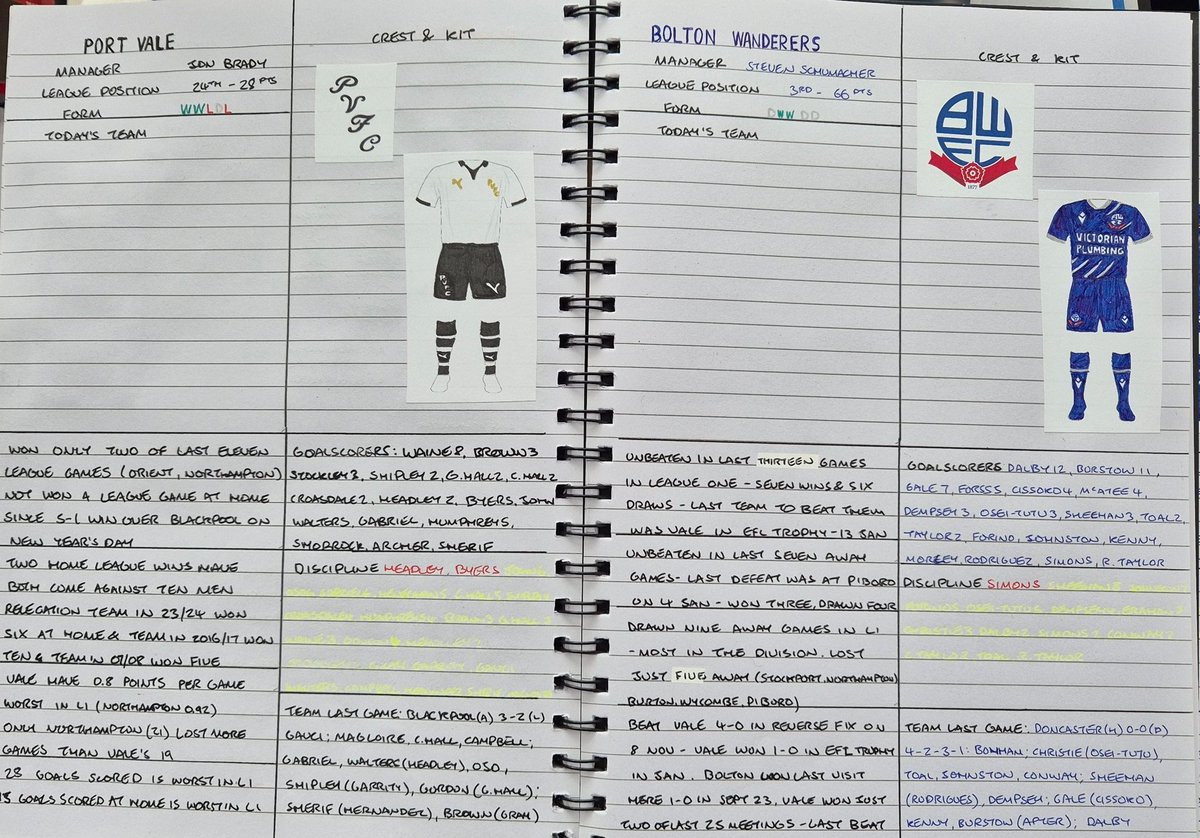 PORT VALE
MANAGER JON BRADY
LEAGUE POSITION 24TH - 28 PTS
FORM WWLDL
TODAY'S TEAM
CREST & KIT
PVFC
PVFC
WON ONLY TWO OF LAST ELEVEN
LEAGUE GAMES (ORIENT, NORTHAMPTON)
NOT WON A LEAGUE GAME AT HOME
SINCE 5-1 WIN OVER BLACKPOOL ON
NEW YEAR'S DAY
TWO HOME LEAGUE WINS HAVE
BOTH COME AGAINST TEN MEN
RELEGATION TEAM IN 23/24 WON
SIX AT HOME & TEAM IN 2016/17 WON
TEN & TEAM IN 07/08 WON FIVE
VALE HAVE 0.8 POINTS PER GAME
WORST IN L1 (NORTHAMPTON 0.92)
ONLY NORTHAMPTON (21) LOST MORE
GAMES THAN VALE'S 19
28 GOALS SCORED IS WORST IN L1
GOALS SCORED AT HOME IS WORST IN L1
GOALSCORERS: WAINE 8, BROWN 3
STOCKLEY 3, SHIPLEY 2, G.HALL 2, C.HALL 2
CROASDALE 2, HEADLEY 2, BYERS, JOHN
WALTERS, GABRIEL, HUMPHREYS,
SHORROCK, ARCHER, SHERIF
DISCIPLINE HEADLEY, BYERS
TEAM LAST GAME: BLACKPOOL (A) 3-2 (L)
GAUCI; MAGLOIRE, C.HALL, CAMPBELL;
GABRIEL, WALTERS (HEADLEY), OJO,
SHIPLEY (GARRITY), GORDON (G.HALL);
SHERIF (HERNANDEZ), BROWN (GRAM)
BOLTON WANDERERS
MANAGER STEVEN SCHUMACHER
LEAGUE POSITION 3RD - 66 PTS
FORM DWWDD
TODAY'S TEAM
CREST & KIT
BWFC
1877
VICTORIAN
PLUMBING
UNBEATEN IN LAST THIRTEEN GAMES
IN LEAGUE ONE - SEVEN WINS & SIX
DRAWS - LAST TEAM TO BEAT THEM
WAS VALE IN EFL TROPHY - 13 JAN
UNBEATEN IN LAST SEVEN AWAY
GAMES - LAST DEFEAT WAS AT P'BORO
ON 4 JAN - WON THREE, DRAWN FOUR
DRAWN NINE AWAY GAMES IN L1
- MOST IN THE DIVISION. LOST
JUST FIVE AWAY (STOCKPORT, NORTHAMPTON,
BURTON, WYCOMBE, P'BORO)
BEAT VALE 4-0 IN REVERSE FIX ON
8 NOV - VALE WON 1-0 IN EFL TROPHY
IN JAN. BOLTON WON LAST VISIT
HERE 1-0 IN SEPT 23. VALE WON JUST
TWO OF LAST 25 MEETINGS - LAST BEAT
GOALSCORERS DALBY 12, BURSTOW 11,
GALE 7, FORSS 5, CISSOKO 4, McATEE 4,
DEMPSEY 3, OSEI-TUTU 3, SHEEHAN 3, TOAL 2,
TAYLOR 2, FORINO, JOHNSTON, KENNY,
MORLEY, RODRIGUEZ, SIMONS, R. TAYLOR
DISCIPLINE SIMONS
C TAYLOR TOAL R TAYLOR
TEAM LAST GAME: DONCASTER (H) 0-0 (D)
4-2-3-1: BONHAM; CHRISTIE (OSEI-TUTU),
TOAL, JOHNSTON, CONWAY; SHEEHAN
(RODRIGUES), DEMPSEY; GALE (CISSOKO),
KENNY, BURSTOW (APTER); DALBY